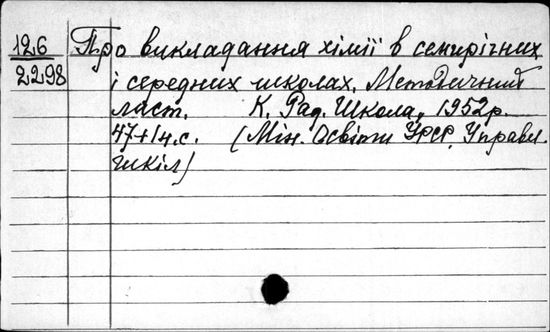 126 Про викладання хімії в семирічних
2298 і середних школах. Методичний
лист. К. Рад. Школа, 1952р.
47+1н.с. (Мін. Освіти УРСР, Управл.
шкіл)